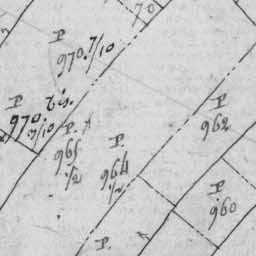 70
P
970.7/10
P
970. bis.
3/10
P.
965
1/2
P.
964
1/2
P
962
P
960
P.